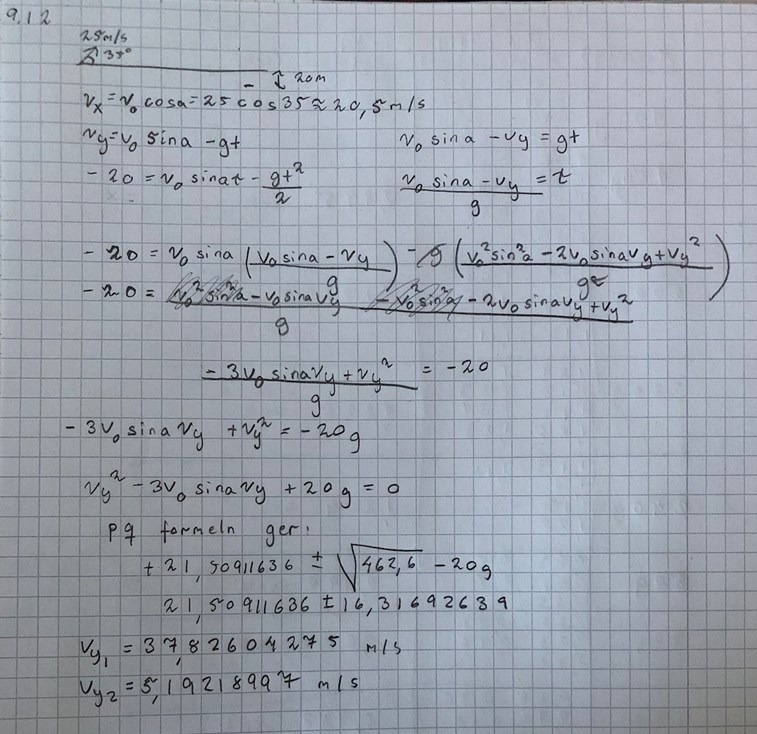 9.12
25m/s
35°
↕ 20m
vₓ = v₀ cosa = 25 cos 35 ≈ 20,5 m/s
vy = v₀ sina - gt
v₀ sina - vy = gt
-20 = v₀ sinat - gt²/2
(v₀ sina - vy)/g = t
-20 = v₀ sina ((v₀ sina - vy)/g) - g ((v₀² sin²a - 2v₀ sinavy + vy²)/g2)
-20 = (v₀² sin²a - v₀ sinavy - v₀² sin²a - 2v₀ sinavy + vy²)/g
(-3v₀ sinavy + vy²)/g = -20
-3v₀ sina vy + vy² = -20g
vy² - 3v₀ sinavy + 20g = 0
pq formeln ger:
+21,50911636 ± √462,6 - 20g
21,50911636 ± 16,31692639
vy₁ = 37,82604275 m/s
vy₂ = 5,19218997 m/s